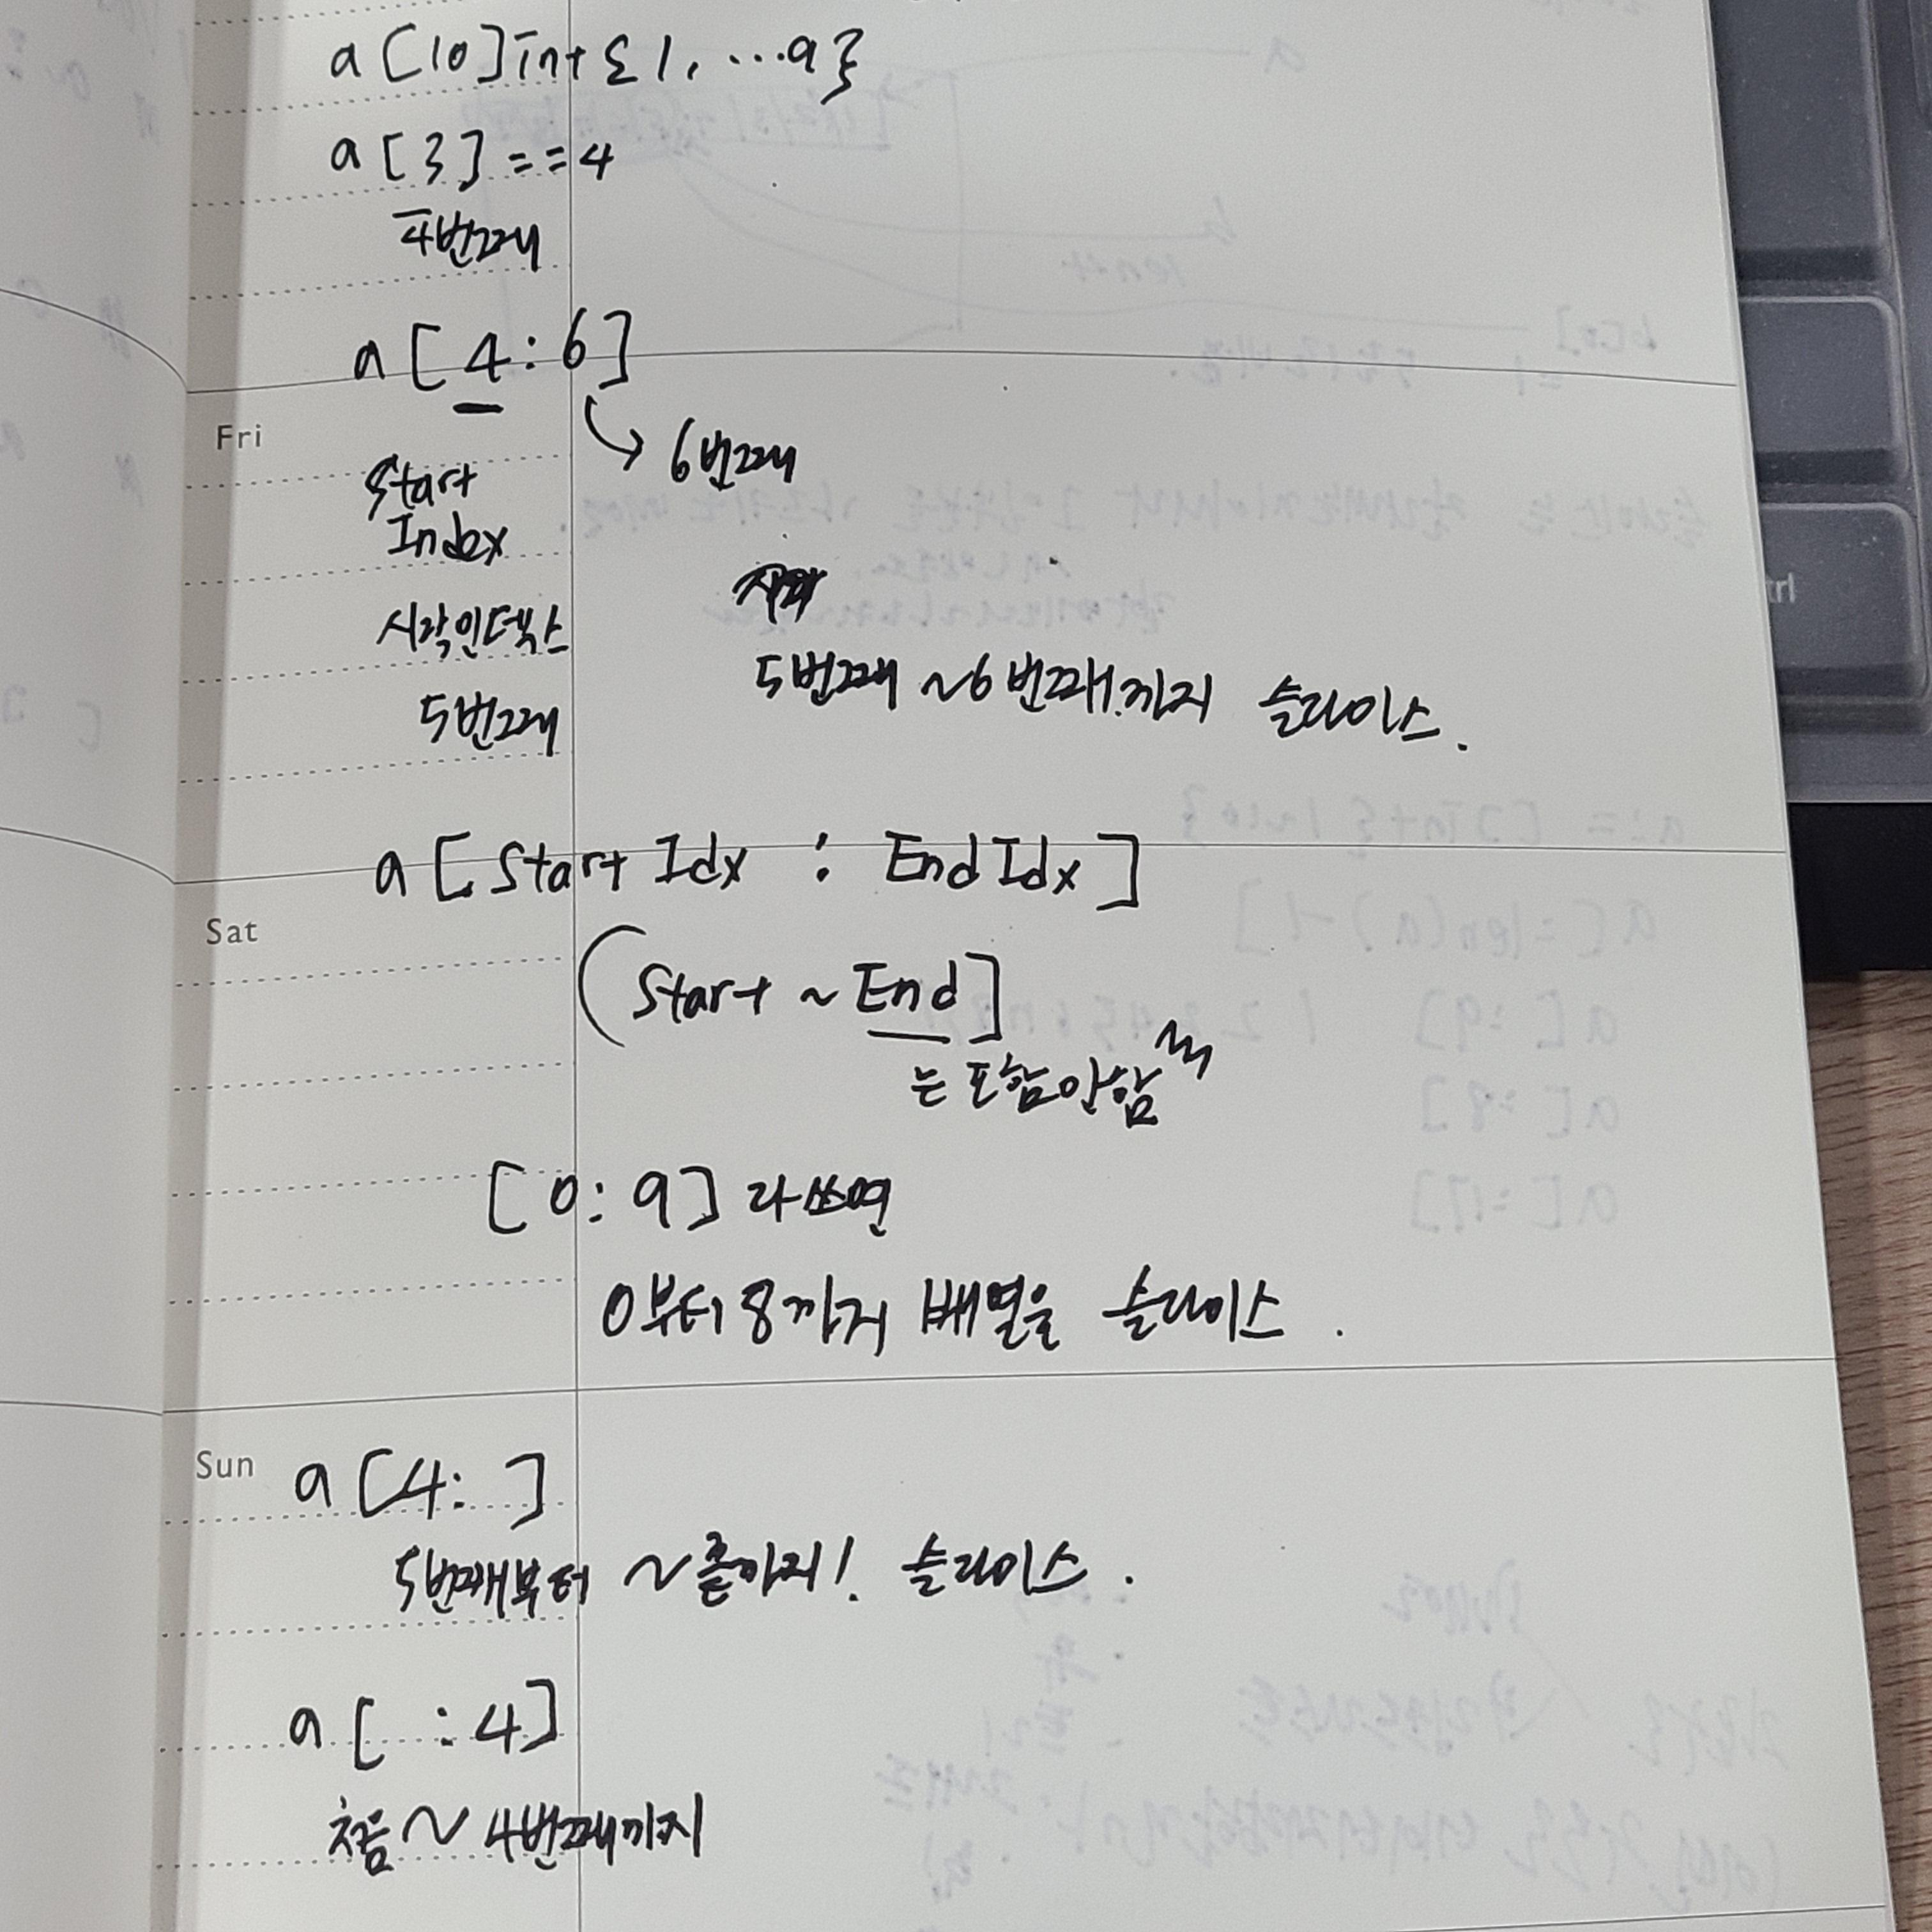 a[10]int{1, ...9}
a[3]==4
4번째
a[4:6]
Fri
6번째
Start
Index
시작인덱스
5번째
5번째 ~6번째까지 슬라이스.
a[Start Idx : End Idx]
Sat
(Start ~ End]
는 포함안함
[0:9]라쓰면
0부터8까지 배열을 슬라이스.
Sun
a[4: ]
5번째부터 ~끝까지! 슬라이스.
a[ :4]
처음~4번째까지